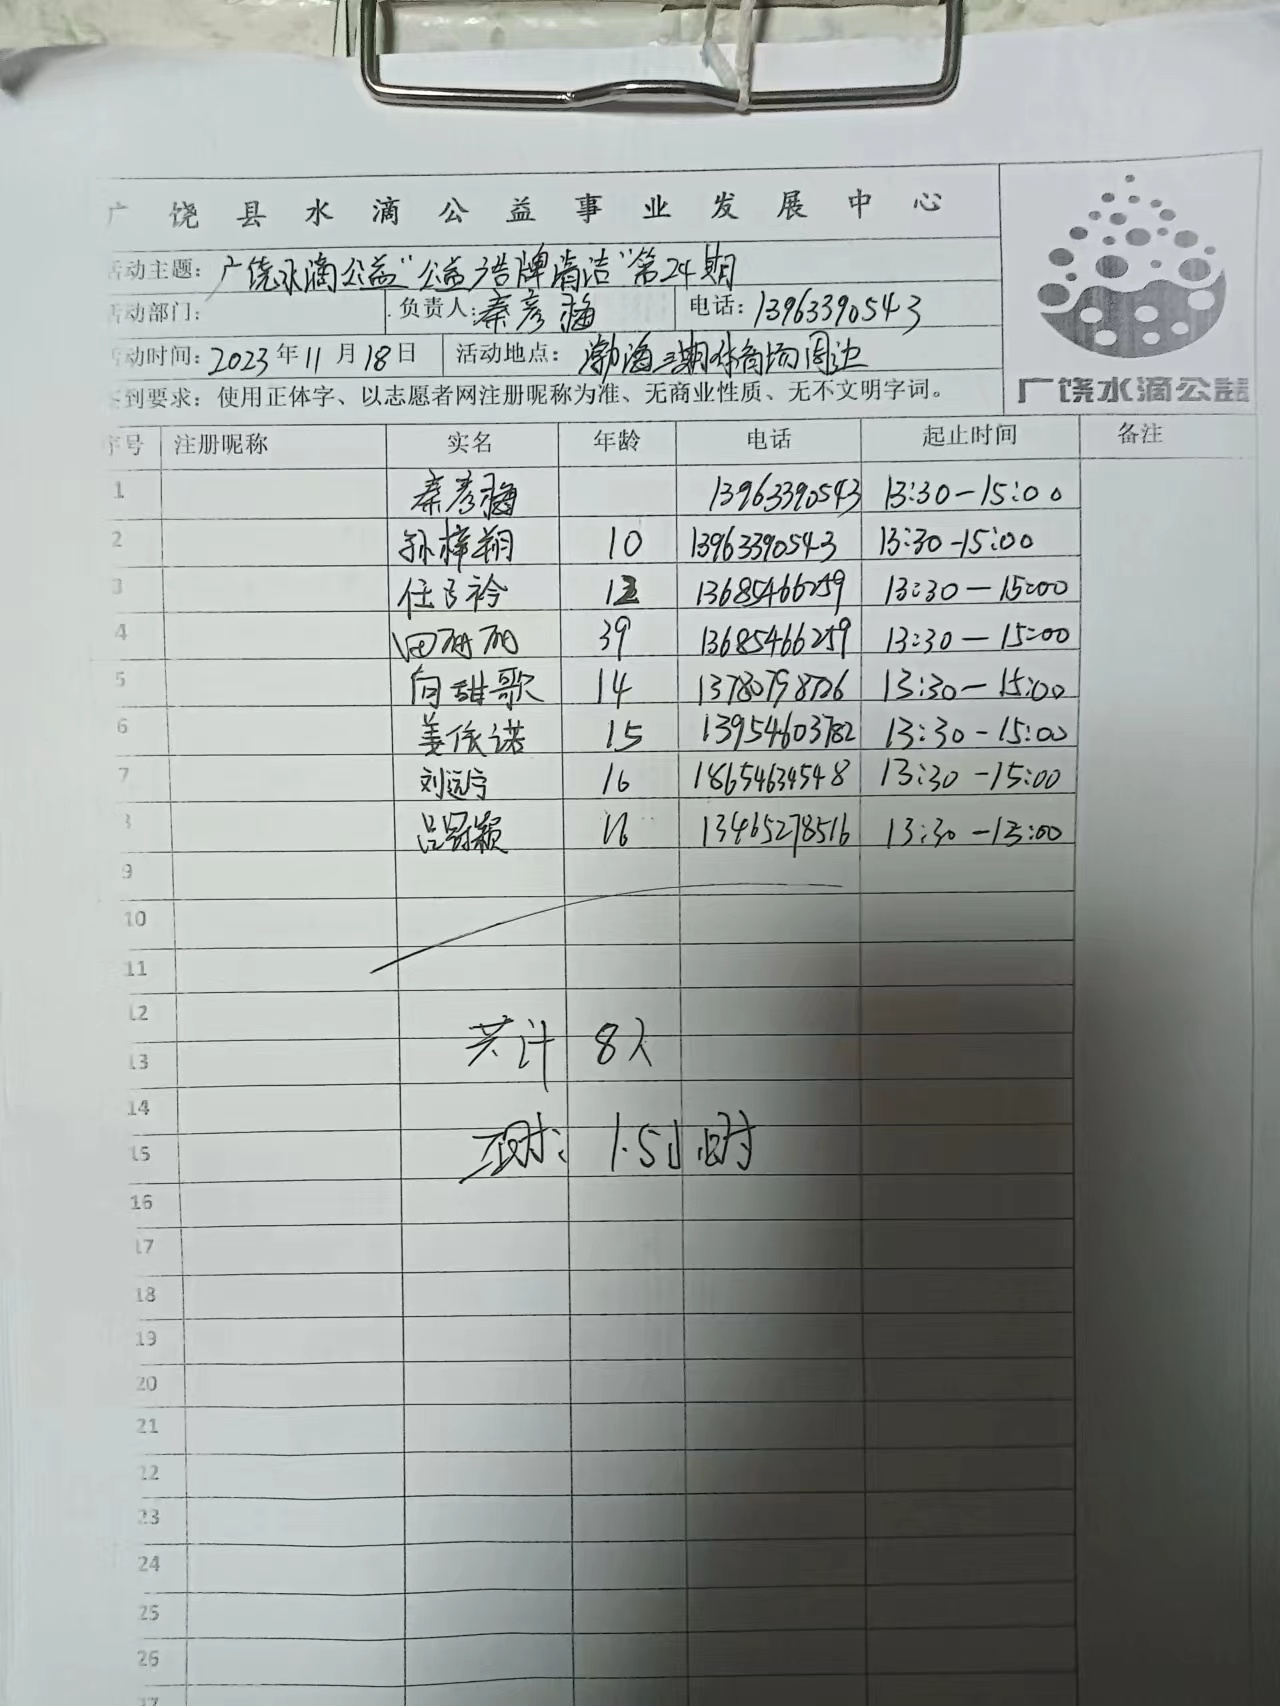 广饶县水滴公益事业发展中心
活动主题：广饶水滴公益"公益广告牌清洁"第24期
活动部门： 负责人：秦彦 电话：13963390543
活动时间：2023年11月18日 活动地点：渤海三期 商场周边
签到要求：使用正体字、以志愿者网注册昵称为准、无商业性质、无不文明字词。
广饶水滴公益
序号 注册昵称 实名 年龄 电话 起止时间 备注
1 秦彦 13963390543 13:30-15:00
2 孙梓翔 10 13963390543 13:30-15:00
3 任 衿 12 13685466259 13:30-15:00
4 田 39 13685466259 13:30-15:00
5 向甜歌 14 13780798726 13:30-15:00
6 姜依诺 15 13954603782 13:30-15:00
7 刘远宁 16 18654634548 13:30-15:00
8 吕冠颖 16 13465278516 13:30-15:00
9
10
11
12
13 共计 8人
14
15 工时：1.5小时
16
17
18
19
20
21
22
23
24
25
26
27